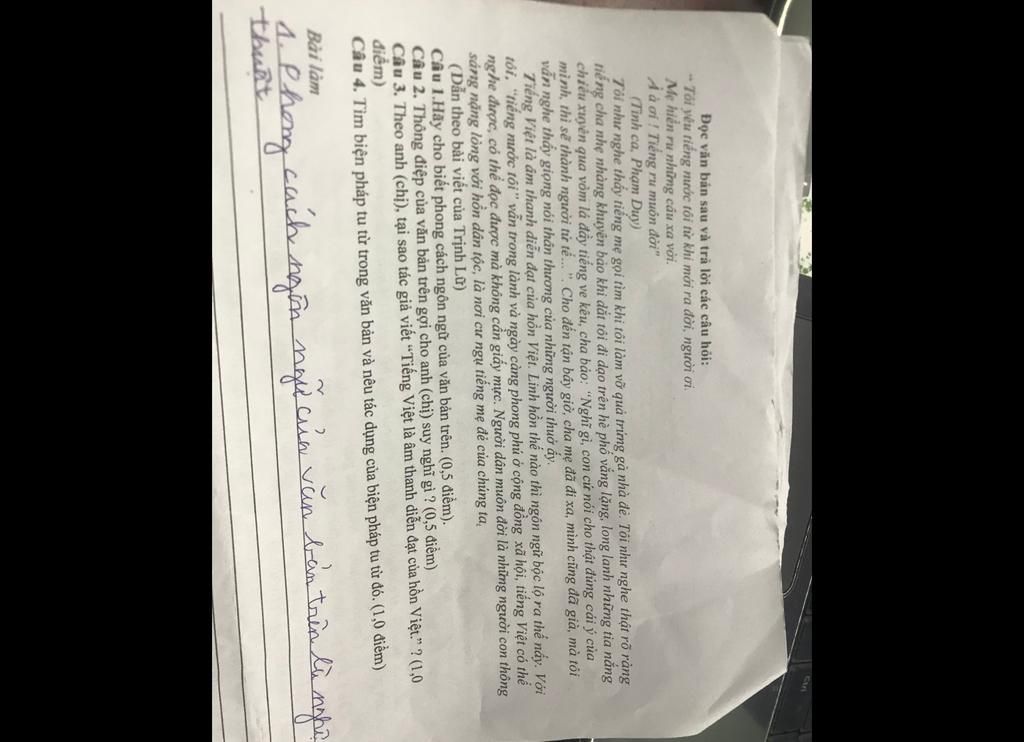 Đọc văn bản sau và trả lời các câu hỏi:
“Tôi yêu tiếng nước tôi từ khi mới ra đời, người ơi.
Mẹ hiền ru những câu xa vời.
À à ơi ! Tiếng ru muôn đời”
(Tình ca, Phạm Duy)
Tôi như nghe thấy tiếng mẹ gọi tìm khi tôi làm vỡ quả trứng gà nhà đẻ. Tôi như nghe thật rõ ràng
tiếng cha nhẹ nhàng khuyên bảo khi dắt tôi đi dạo trên hè phố vắng lặng, long lanh những tia nắng
chiều xuyên qua vòm lá đầy tiếng ve kêu, cha bảo: “Nghĩ gì, con cứ nói cho thật đúng cái ý của
mình, thì sẽ thành người tử tế... ”. Cho đến tận bây giờ, cha mẹ đã đi xa, mình cũng đã già, mà tôi
vẫn nghe thấy giọng nói thân thương của những người thuở ấy.
Tiếng Việt là âm thanh diễn đạt của hồn Việt. Linh hồn thế nào thì ngôn ngữ bộc lộ ra thế nấy. Với
tôi, “tiếng nước tôi” vẫn trong lành và ngày càng phong phú ở cộng đồng xã hội, tiếng Việt có thể
nghe được, có thể đọc được mà không cần giấy mực. Người dân muôn đời là những người con thông
sáng nặng lòng với hồn dân tộc, là nơi cư ngụ tiếng mẹ đẻ của chúng ta.
(Dẫn theo bài viết của Trịnh Lữ)
Câu 1.Hãy cho biết phong cách ngôn ngữ của văn bản trên. (0,5 điểm).
Câu 2. Thông điệp của văn bản trên gợi cho anh (chị) suy nghĩ gì ? (0,5 điểm)
Câu 3. Theo anh (chị), tại sao tác giả viết “Tiếng Việt là âm thanh diễn đạt của hồn Việt.” ? (1,0
điểm)
Câu 4. Tìm biện pháp tu từ trong văn bản và nêu tác dụng của biện pháp tu từ đó. (1,0 điểm)
Bài làm
1. Phong cách ngôn ngữ của văn bản trên là nghệ
thuật
Ctrl